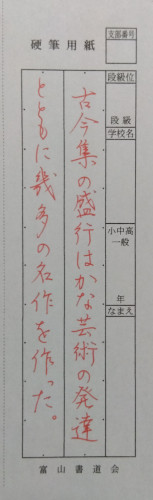 硬筆用紙
支部番号
段級位
段 級
学校名
小中高
一般
年
なまえ
古今集の盛行はかな芸術の発達
とともに幾多の名作を作った。
富山書道会